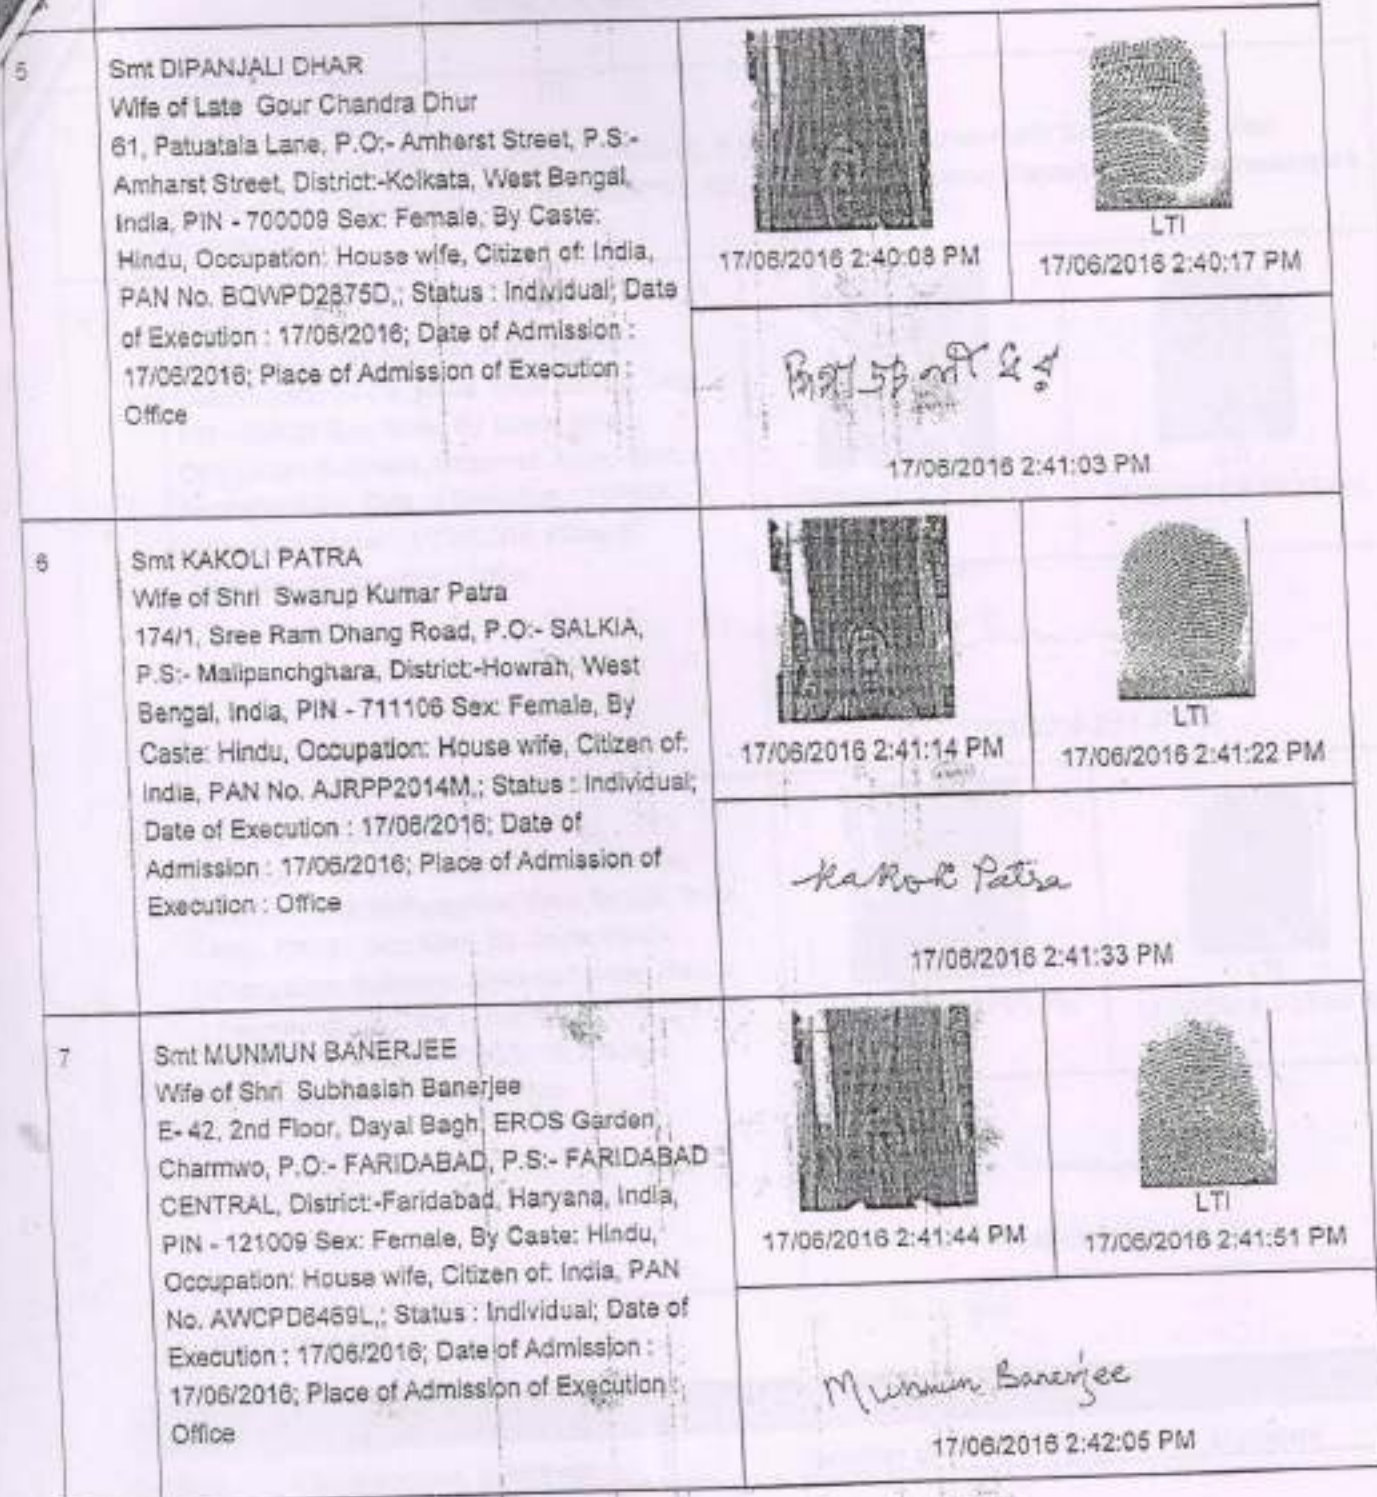 5
Smt DIPANJALI DHAR
Wife of Late Gour Chandra Dhur
61, Patuatala Lane, P.O:- Amherst Street, P.S:-
Amharst Street, District:-Kolkata, West Bengal,
India, PIN - 700009 Sex: Female, By Caste:
Hindu, Occupation: House wife, Citizen of: India,
PAN No. BQWPD2875D,; Status : Individual; Date
of Execution : 17/06/2016; Date of Admission :
17/06/2016; Place of Admission of Execution :
Office
17/06/2016 2:40:08 PM
LTI
17/06/2016 2:40:17 PM
17/06/2016 2:41:03 PM
6
Smt KAKOLI PATRA
Wife of Shri Swarup Kumar Patra
174/1, Sree Ram Dhang Road, P.O:- SALKIA,
P.S:- Malipanchghara, District:-Howrah, West
Bengal, India, PIN - 711106 Sex: Female, By
Caste: Hindu, Occupation: House wife, Citizen of:
India, PAN No. AJRPP2014M,; Status : Individual;
Date of Execution : 17/06/2016; Date of
Admission : 17/06/2016; Place of Admission of
Execution : Office
17/06/2016 2:41:14 PM
LTI
17/06/2016 2:41:22 PM
Kakoli Patra
17/06/2016 2:41:33 PM
7
Smt MUNMUN BANERJEE
Wife of Shri Subhasish Banerjee
E- 42, 2nd Floor, Dayal Bagh, EROS Garden,
Charmwo, P.O:- FARIDABAD, P.S:- FARIDABAD
CENTRAL, District:-Faridabad, Haryana, India,
PIN - 121009 Sex: Female, By Caste: Hindu,
Occupation: House wife, Citizen of: India, PAN
No. AWCPD6469L,; Status : Individual; Date of
Execution : 17/06/2016; Date of Admission :
17/06/2016; Place of Admission of Execution :
Office
17/06/2016 2:41:44 PM
LTI
17/06/2016 2:41:51 PM
Munmun Banerjee
17/06/2016 2:42:05 PM